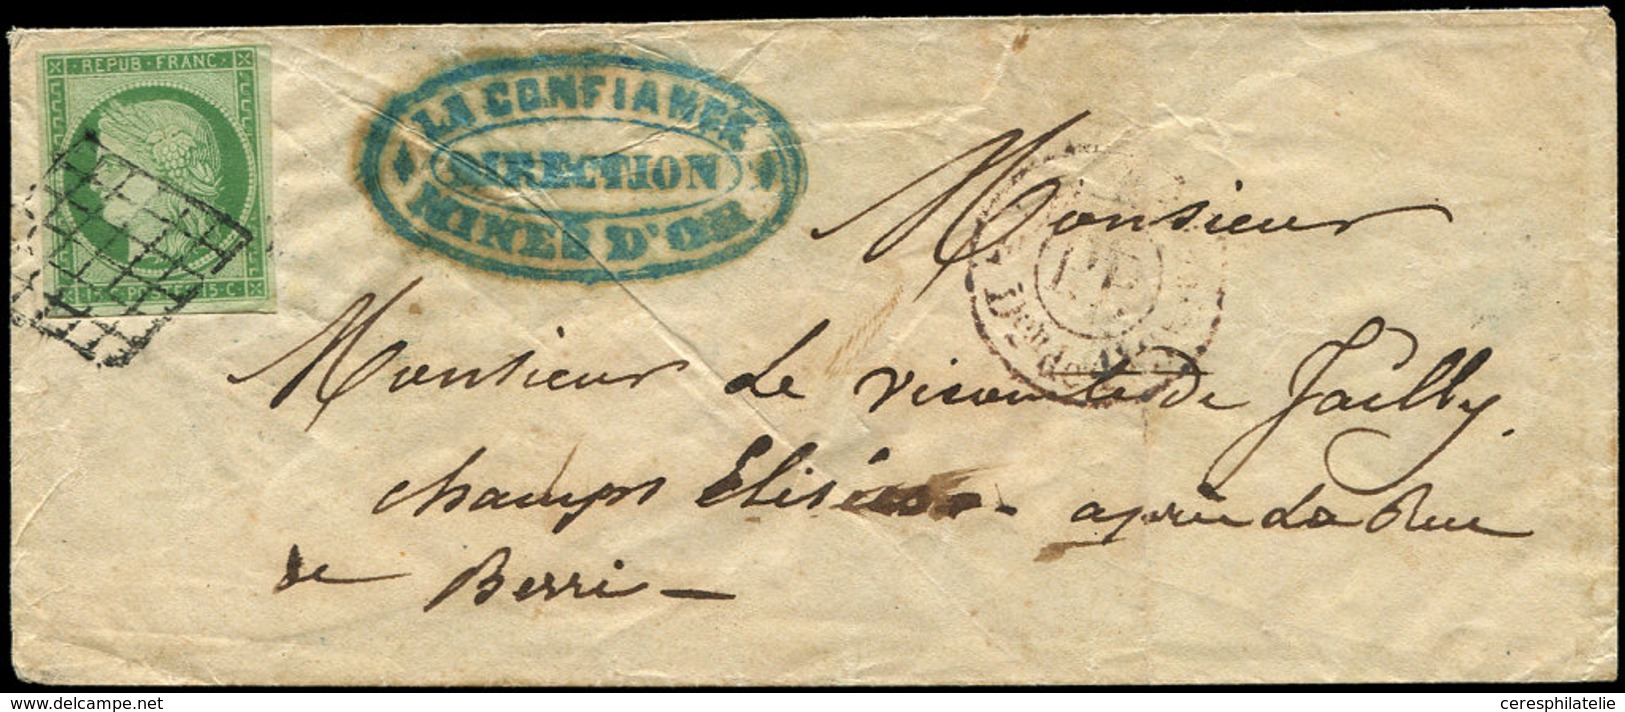 REPUB·FRANC·
15 POSTES 15·C·
LA CONFIANCE
DIRECTION
MINES D'OR
Monsieur
Monsieur Le Vicomte De Jailly.
champs Elisées - après La Rue
de Berri -
ceresphilatelie